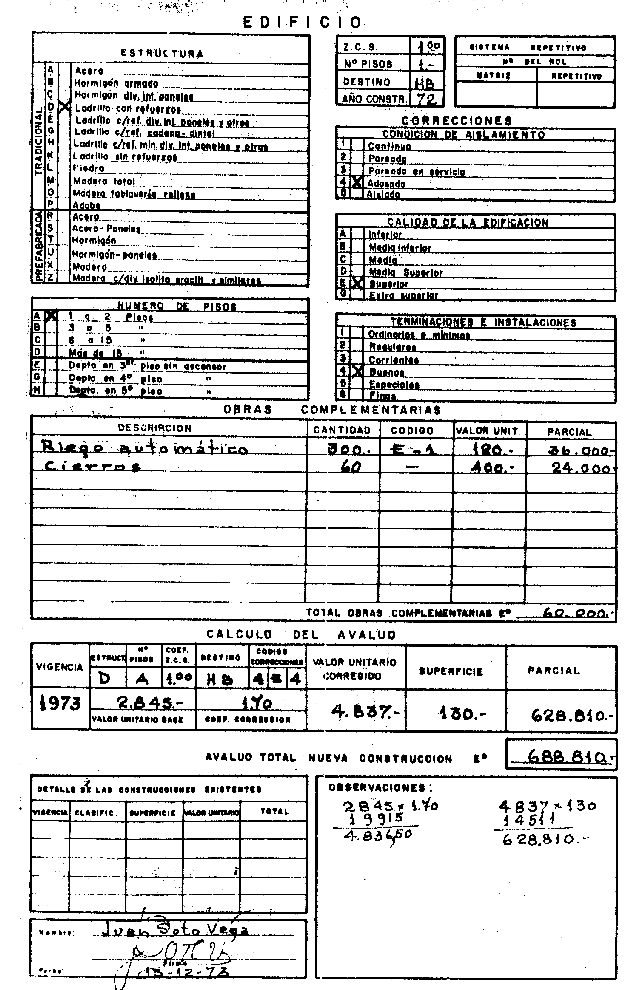 EDIFICIO
ESTRUCTURA
TRADICIONAL
A Acero
B Hormigón armado
C Hormigón div. int. paneles
D X Ladrillo con refuerzos
E Ladrillo c/ref. div. int. paneles y otros
G Ladrillo c/ref. cadena-dintel
H Ladrillo c/ref. min. div. int. paneles y otros
K Ladrillo sin refuerzos
L Piedra
M Madera total
O Madera tabiquería rellena
P Adobe
PREFABRICADA
R Acero
S Acero-Paneles
T Hormigón
U Hormigón-paneles
X Madera
Z Madera c/div. isolita eraclit y similares
NUMERO DE PISOS
A X 1 a 2 Pisos
B 3 a 5 "
C 6 a 15 "
D Más de 15 "
E Depto en 3er piso sin ascensor
G Depto. en 4º piso "
H Depto. en 5º piso "
Z.C.S. 1.00
Nº PISOS 1.-
DESTINO HB
AÑO CONSTR. 72
SISTEMA REPETITIVO
Nº DEL ROL
MATRIZ REPETITIVO
CORRECCIONES
CONDICION DE AISLAMIENTO
1 Continua
2 Pareada
3 Pareada en servicio
4 X Adosada
5 Aislada
CALIDAD DE LA EDIFICACION
A Inferior
B Media inferior
C Media
D Media Superior
E X Superior
G Extra superior
TERMINACIONES E INSTALACIONES
1 Ordinarios o mínimos
2 Regulares
3 Corrientes
4 X Buenos
5 Especiales
6 Finas
OBRAS COMPLEMENTARIAS
DESCRIPCION CANTIDAD CODIGO VALOR UNIT PARCIAL
Riego automático 300.- E-1 120.- 36.000-
Cierros 60 — 400.- 24.000-
TOTAL OBRAS COMPLEMENTARIAS Eº 60.000.-
CALCULO DEL AVALUO
VIGENCIA ESTRUCT. Nº PISOS COEF. Z.C.S. DESTINO CODIGO CORRECCIONES VALOR UNITARIO CORREGIDO SUPERFICIE PARCIAL
D A 1.00 HB 4 E 4
1973 2.845.- 1.70 4.837.- 130.- 628.810.-
VALOR UNITARIO BASE COEF. CORRECCION
AVALUO TOTAL NUEVA CONSTRUCCION Eº 688.810.-
DETALLE DE LAS CONSTRUCCIONES EXISTENTES
VIGENCIA CLASIFIC. SUPERFICIE VALOR UNITARIO TOTAL
OBSERVACIONES:
2845 x 1.70 4837 x 130
19915 14511
4.836,50 628.810.-
Nombre: Juan Soto Vega
Firma
Fecha: 13-12-73